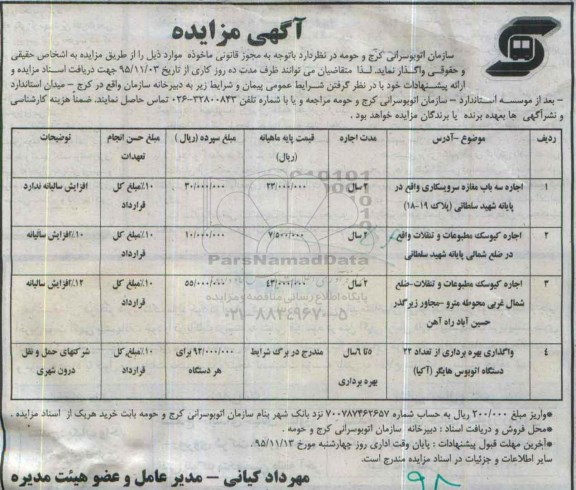 آگهی مزایده
سازمان اتوبوسرانی کرج و حومه در نظردارد باتوجه به مجوز قانونی ماخوذه موارد ذیل را از طریق مزایده به اشخاص حقیقی
و حقوقی واگذار نماید. لذا متقاضیان می توانند ظرف مدت ده روز کاری از تاریخ ۹۵/۱۱/۰۳ جهت دریافت اسناد مزایده و
ارائه پیشنهادات خود با در نظر گرفتن شرایط عمومی پیمان و شرایط زیر به دبیرخانه سازمان واقع در کرج – میدان استاندارد
– بعد از موسسه استاندارد – سازمان اتوبوسرانی کرج و حومه مراجعه و یا با شماره تلفن ۳۲۸۰۰۸۴۳-۰۲۶ تماس حاصل نمایند. ضمناً هزینه کارشناسی
و نشرآگهی ها بعهده برنده یا برندگان مزایده خواهد بود .
ردیف موضوع –آدرس مدت اجاره قیمت پایه ماهیانه (ریال) مبلغ سپرده (ریال) مبلغ حسن انجام تعهدات توضیحات
۱ اجاره سه باب مغازه سرویسکاری واقع در پایانه شهید سلطانی (پلاک ۱۹-۱۸) ۲ سال ۲۳/۰۰۰/۰۰۰ ۳۰/۰۰۰/۰۰۰ ۱۰٪مبلغ کل قرارداد افزایش سالیانه ندارد
۲ اجاره کیوسک مطبوعات و تنقلات واقع در ضلع شمالی پایانه شهید سلطانی سال ۷/۵۰۰/۰۰۰ ۱۰/۰۰۰/۰۰۰ ۱۰٪مبلغ کل قرارداد ۱۰٪افزایش سالیانه
۳ اجاره کیوسک مطبوعات و تنقلات-ضلع شمال غربی محوطه مترو -مجاور زیرگذر حسین آباد راه آهن ۲ سال ۴۳/۰۰۰/۰۰۰ ۵۵/۰۰۰/۰۰۰ ۱۰٪مبلغ کل قرارداد ۱۲٪افزایش سالیانه
۴ واگذاری بهره برداری از تعداد ۲۲ دستگاه اتوبوس هایگر (آکیا) ۵تا ۶سال بهره برداری مندرج در برگ شرایط ۹۲/۰۰۰/۰۰۰ برای هر دستگاه ۱۰٪مبلغ کل قرارداد شرکتهای حمل و نقل درون شهری
ParsNamadData
پایگاه اطلاع رسانی مناقصه و مزایده
۰۲۱-۸۸۳۴۹۶۷۰-۵
●واریز مبلغ ۲۰۰/۰۰۰ ریال به حساب شماره ۷۰۰۷۸۷۴۶۲۶۵۷ نزد بانک شهر بنام سازمان اتوبوسرانی کرج و حومه بابت خرید هریک از اسناد مزایده .
●محل فروش و دریافت اسناد : دبیرخانه سازمان اتوبوسرانی کرج و حومه .
●آخرین مهلت قبول پیشنهادات : پایان وقت اداری روز چهارشنبه مورخ ۹۵/۱۱/۱۳ .
سایر اطلاعات و جزئیات در اسناد مزایده مندرج است.
مهرداد کیانی – مدیر عامل و عضو هیئت مدیره